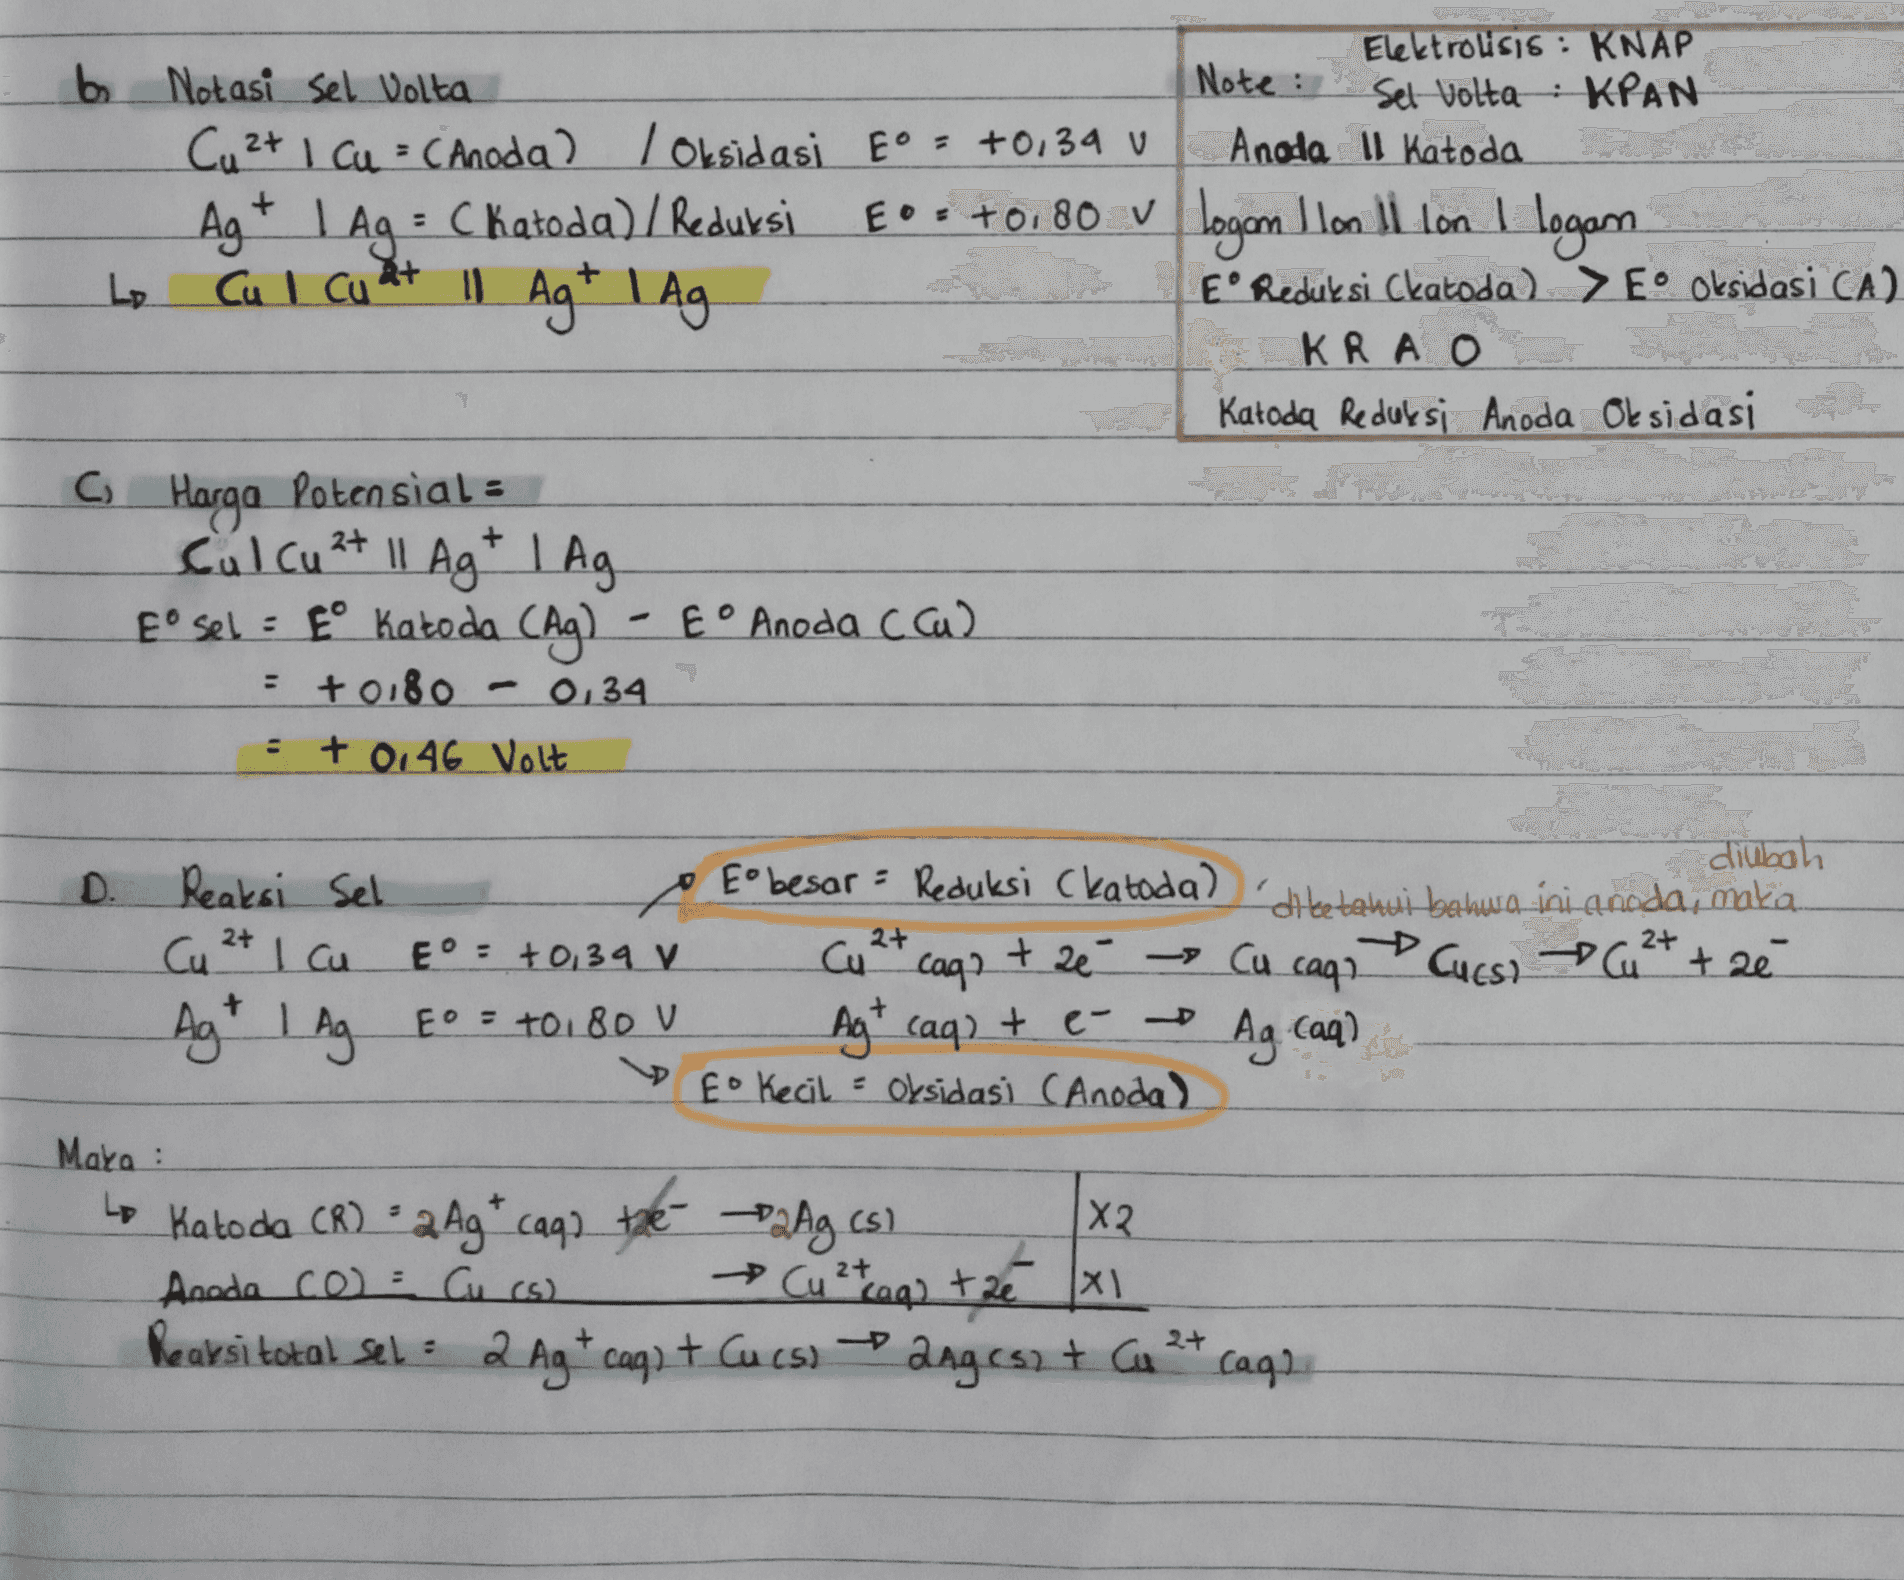 b, Notasi Sel Volta
Cu²⁺ | Cu = (Anoda) / Oksidasi E° = +0,34 V
Ag⁺ | Ag = (Katoda) / Reduksi E° = +0,80 V
↳ Cu | Cu²⁺ || Ag⁺ | Ag
Note : Elektrolisis : KNAP
Sel Volta : KPAN
Anoda || Katoda
logam | Ion || Ion | logam
E° Reduksi (katoda) > E° Oksidasi (A)
K R A O
Katoda Reduksi Anoda Oksidasi
C, Harga Potensial =
Cu | Cu²⁺ || Ag⁺ | Ag
E° Sel = E° Katoda (Ag) - E° Anoda (Cu)
= +0,80 - 0,34
= + 0,46 Volt
D. Reaksi Sel
E° besar = Reduksi (katoda)
diketahui bahwa ini anoda, maka diubah
Cu²⁺ | Cu E° = +0,34 V Cu²⁺ (aq) + 2e⁻ → Cu (aq) → Cu(s) → Cu²⁺ + 2e⁻
Ag⁺ | Ag E° = +0,80 V Ag⁺ (aq) + e⁻ → Ag (aq)
E° Kecil = Oksidasi (Anoda)
Maka :
↳ Katoda (R) = 2Ag⁺ (aq) + 2e⁻ → 2Ag (s) | X2
Anoda (O) = Cu (s) → Cu²⁺ (aq) + 2e⁻ | X1
Reaksi total sel = 2 Ag⁺ (aq) + Cu (s) → 2Ag (s) + Cu²⁺ (aq)